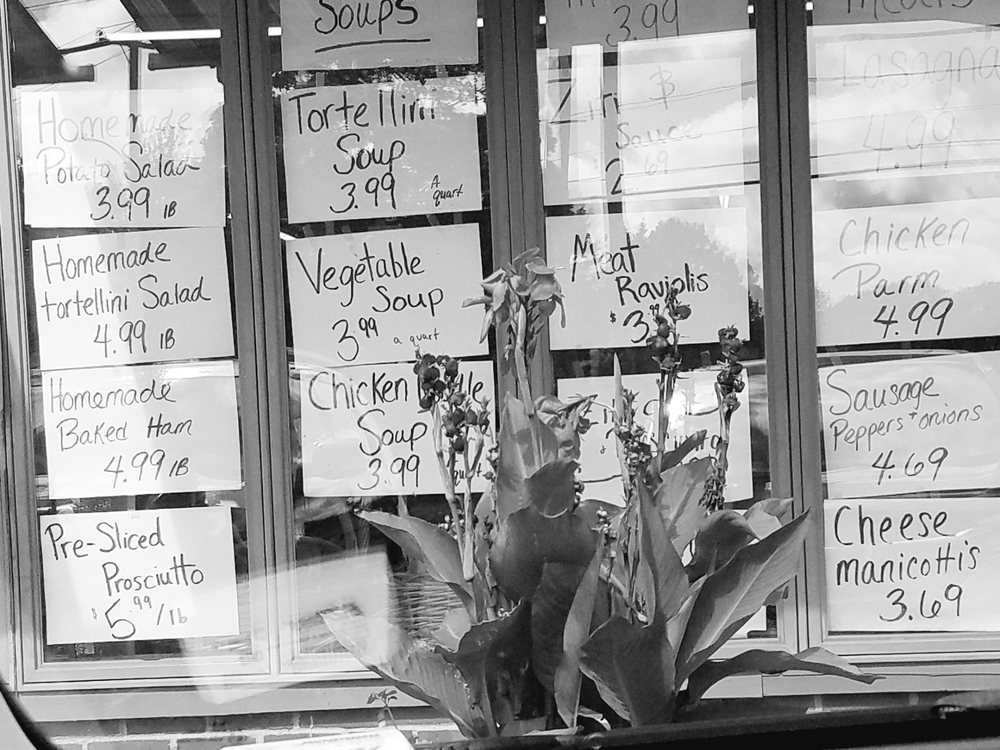 Homemade
Potato Salad
3.99 lB
Homemade
tortellini Salad
4.99 lB
Homemade
Baked Ham
4.99 lB
Pre-Sliced
Prosciutto
$5.99/lb
Soups
Tortellini
Soup
3.99 A quart
Vegetable
Soup
3.99 a quart
Chicken
Soup
3.99
3.99
$
Sauce
69
Meat
Raviolis
$3
Lasagna
4.99
Chicken
Parm
4.99
Sausage
Peppers + onions
4.69
Cheese
manicottis
3.69